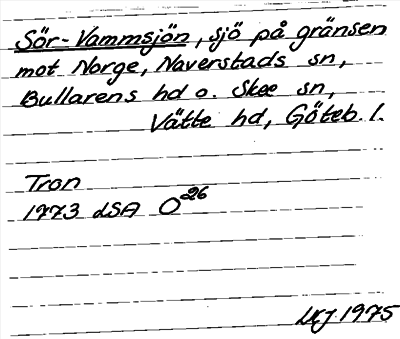 Sör-Vammsjön, sjö på gränsen
mot Norge, Naverstads sn,
Bullarens hd o. Skee sn,
Vätte hd, Göteb. l.
Tron
1773 LSA O26
1975